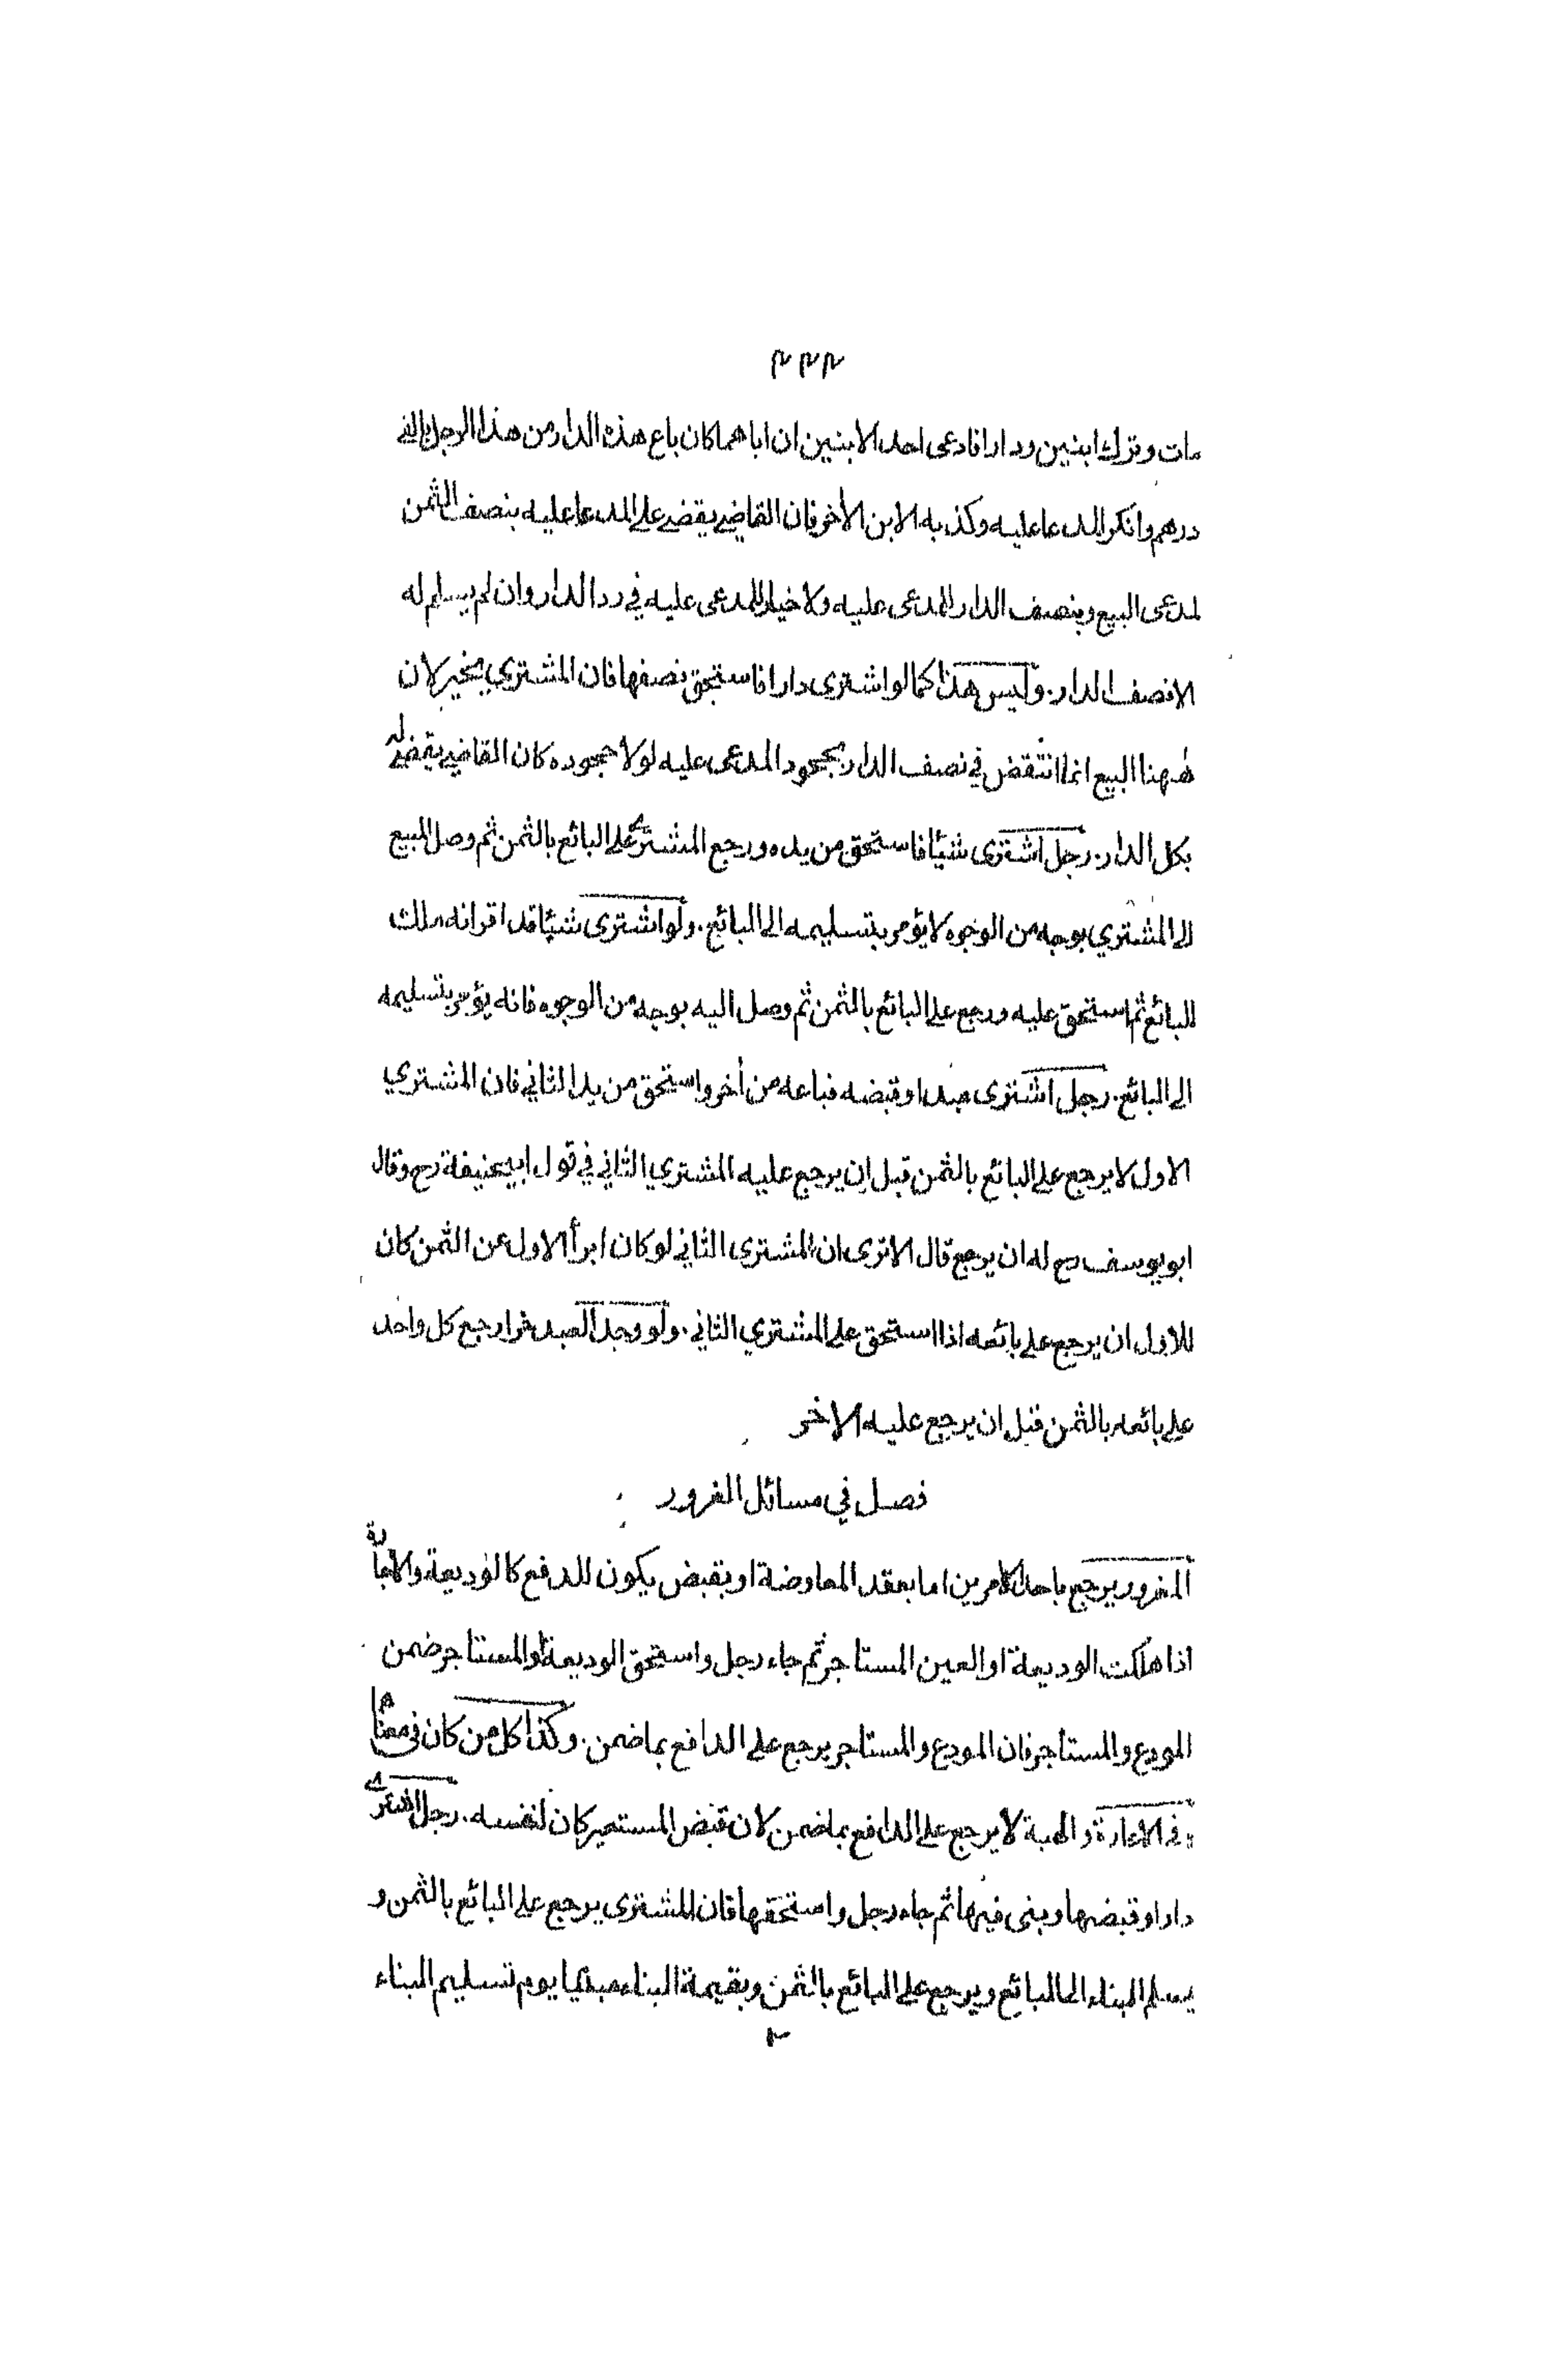 ٣٣٣
مات وترك ابنين ودارا فادعى احد الابنين ان اباهما كان باع هذه الدار من هذا الرجل بالف
درهم وانكر المدعا عليه وكذبه الابن الأخر فان القاضي يقضي على المدعا عليه بنصف الثمن
لمدعى البيع وبنصف الدار للمدعى عليه ولا خيار للمدعى عليه في رد الدار وان لم يسلم له
الا نصف الدار. وليس هذا كما لو اشترى دارا فاستحق نصفها فان المشتري يخير لان
ههنا البيع انما انتقض في نصف الدار بجحود المدعى عليه لولا جحوده كان القاضي يقضي له
بكل الدار. رجل اشترى شيئا فاستحق من يده ورجع المشتري على البائع بالثمن ثم وصل المبيع
الى المشتري بوجه من الوجوه لا يؤمر بتسليمه الى البائع. ولو اشترى شيئا قد اقر انه ملك
البائع ثم استحق عليه ورجع على البائع بالثمن ثم وصل اليه بوجه من الوجوه فانه يؤمر بتسليمه
الى البائع. رجل اشترى عبدا وقبضه فباعه من أخر واستحق من يد الثاني فان المشتري
الاول لا يرجع على البائع بالثمن قبل ان يرجع عليه المشتري الثاني في قول ابيحنيفة رح وقال
ابو يوسف رح له ان يرجع قال الا ترى ان المشترى الثاني لو كان ابرأ الاول عن الثمن كان
للاول ان يرجع على بائعه اذا استحق على المشتري الثاني. ولو وجد العبد حرا رجع كل واحد
على بائعه بالثمن قبل ان يرجع عليه الاخر
فصل في مسائل الغرور
المغرور يرجع باحد الامرين اما بعقد المعاوضة او بقبض يكون للدفع كالوديعة والاجارة
اذا هلكت الوديعة او العين المستاجر ثم جاء رجل واستحق الوديعة او المستاجر ضمن
المودع والمستاجر فان المودع والمستاجر يرجع على الدافع بما ضمن. وكذا كل من كان في معناهما
وفي الاعارة والهبة لا يرجع على الدافع بما ضمن لان قبض المستعير كان لنفسه. رجل اشترى
دارا وقبضها وبنى فيها ثم جاء رجل واستحقها فان المشترى يرجع على البائع بالثمن و
يسلم البناء الى البائع ويرجع على البائع بالثمن وبقيمة البناء مبنيا يوم تسليم البناء